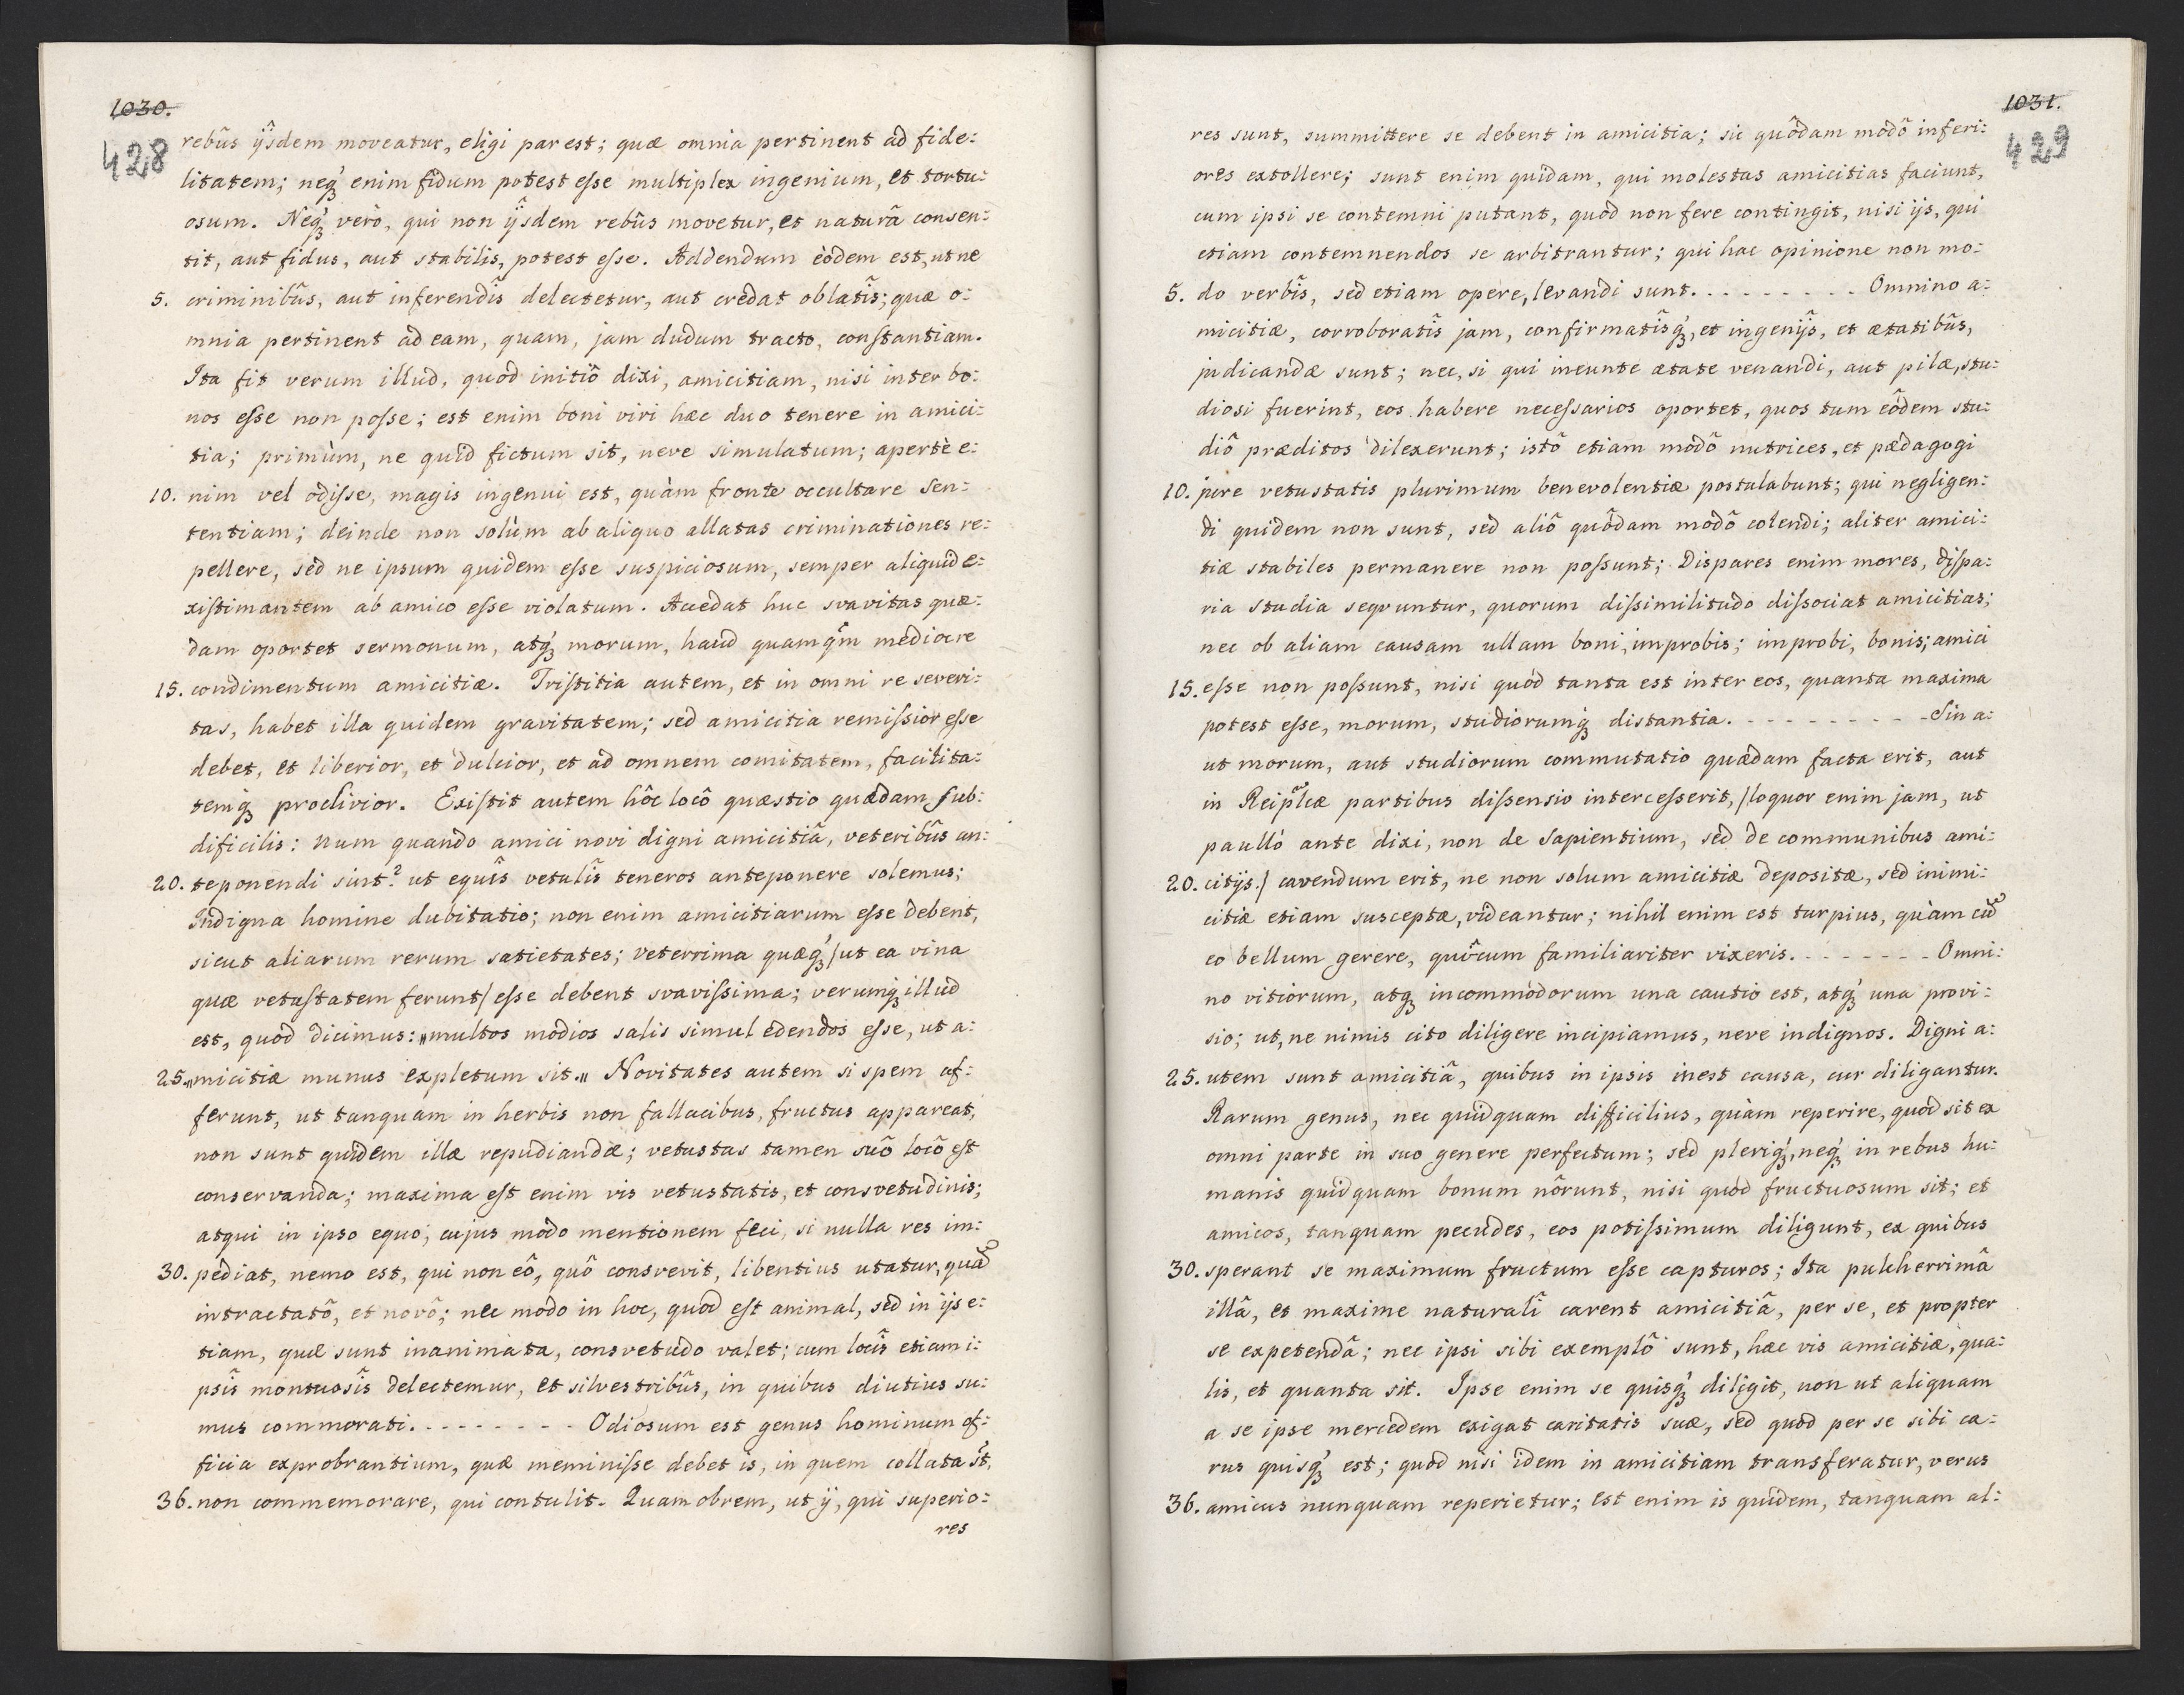 1030.
428
rebûs ÿsdem moveatur, eligi par est; quæ omnia pertinent ad fide:
litatem; neq́ꝫ enim fidum potest eſse multiplex ingenium, et tortu:
osum. Neq́ꝫ verò, qui non ÿsdem rebûs movetur, et naturâ consen:
tit, aut fidus, aut stabilis, potest eſse. Addendum eòdem est, ut ne
5. criminibûs, aut inferendîs delectetur, aut credat oblatîs; quæ o:
mnia pertinent ad eam, quam, jam dudum tracto, conſtantiam.
Ita fit verum illud, quod initiô dixi, amicitiam, nisi inter bo:
nos eſse non poſse; est enim boni viri hæc duo tenere in amici:
tia; primùm, ne quid fictum sit, neve simulatum; apertè e:
10. nim vel odiſse, magis ingenui est, quàm fronte occultare sen:
tentiam; deinde non solùm ab aliquo allatas criminationes re:
pellere, sed ne ipsum quidem eſse suspiciosum, semper aliquid e:
xiſtimantem ab amico eſse violatum. Accedat huc svavitas quæ:
dam oportet sermonum, atq́ꝫ morum, haud quamq̃m mediocre
15. condimentum amicitiæ. Triſtitia autem, et in omni re severi:
tas, habet illa quidem gravitatem; sed amicitia remiſsior eſse
debet, et liberior, et dulcior, et ad omnem comitatem, facilita:
temq́ꝫ proclivior. Exiſtit autem hôc locô quæstio quædam ſub:
dificilis: num quando amici novi digni amicitiâ, veteribûs an:
20. teponendi sint? ut equîs vetulîs teneros anteponere solemus;
Indigna homine dubitatio; non enim amicitiarum eſse debent,
sicut aliarum rerum satietates; veterrima quæq́ꝫ /ut ea vina
quæ vetuſtatem ferunt/ eſse debent svaviſsima; verumq́ꝫ illud
est, quod dicimus: „multos modios salis simul edendos eſse, ut a:
25. „micitiæ munus expletum sit.„ Novitates autem si spem af:
ferunt, ut tanquam in herbis non fallacibus, fructus appareat,
non sunt quidem illæ repudiandæ; vetustas tamen suô locô eſt
conservanda; maxima eſt enim vis vetustatis, et consvetudinis;
atqui in ipso equo, cujus modo mentionem feci, si nulla res im:
30. pediat, nemo est, qui non eô, quô consvevit, libentius utatur, quã
intractatô, et novô; nec modo in hoc, quod eſt animal, sed in ijs e:
tiam, quæ sunt inanimata, consvetudo valet; cum locîs etiam i:
psîs montuosîs delectemur, et silvestribûs, in quibus diutius su:
mus commorati. - - - - - - - - Odiosum est genus hominum of:
ficia exprobrantium, quæ meminiſse debet is, in quem collata st̃,
36. non commemorare, qui contulit. Quamobrem, ut ÿ, qui superio:
res
1031.
429
res sunt, summittere se debent in amicitia; sic quôdam modô inferi:
ores extollere; sunt enim quidam, qui molestas amicitias faciunt,
cum ipsi se contemni putant, quod non fere contingit, nisi ijs, qui
etiam contemnendos se arbitrantur; qui hac opinione non mo:
5. do verbîs, sed etiam opere, levandi sunt. - - - - - - - - - Omnino a:
micitiæ, corroboratîs jam, confirmatîsq́ꝫ, et ingenÿs, et ætatibûs,
judicandæ sunt; nec, si qui ineunte ætate venandi, aut pilæ, stu:
diosi fuerint, eos habere neceſsarios oportet, quos tum eôdem stu:
diô præditos dilexerunt; istô etiam modô nutrices, et pædagogi
10. jure vetustatis plurimum benevolentiæ postulabunt; qui negligen:
di quidem non sunt, sed aliô quôdam modô colendi; aliter amici:
tiæ stabiles permanere non poſsunt; Dispares enim mores, diſpa:
ria studia seqvuntur, quorum diſsimilitudo diſsociat amicitias;
nec ob aliam causam ullam boni, improbis; improbi, bonis; amici
15. eſse non poſsunt, nisi quòd tanta est inter eos, quanta maxima
potest eſse, morum, studiorumq́ꝫ distantia. - - - - - - - - - Sin a:
ut morum, aut studiorum commutatio quædam facta erit, aut
in Reip̃lcæ partibus diſsensio interceſserit, /loquor enim jam, ut
paullò ante dixi, non de Sapientium, sed de communibus ami:
20. citÿs./ cavendum erit, ne non solum amicitiæ depositæ, sed inimi:
citiæ etiam susceptæ, videantur; nihil enim est turpius, quàm cũ
eo bellum gerere, quôcum familiariter vixeris. - - - - - - - Omni:
no vitiorum, atqꝫ incommodorum una cautio est, atq́ꝫ una provi:
sio; ut, ne nimis cito diligere incipiamus, neve indignos. Digni a:
25. utem sunt amicitiâ, quibus in ipsis inest causa, cur diligantur.
Rarum genus, nec quidquam difficilius, quàm reperire, quod sit ex
omni parte in suo genere perfectum; sed pleriq́ꝫ, neq́ꝫ in rebus hu:
manis quidquam bonum nôrunt, nisi quod fructuosum sit; et
amicos, tanquam pecudes, eos potiſsimum diligunt, ex quibus
30. sperant se maximum fructum eſse capturos; Ita pulcherrimâ
illâ, et maxime naturalî carent amicitiâ, per se, et propter
se expetendâ; nec ipsi sibi exemplô sunt, hæc vis amicitiæ, qua:
lis, et quanta sit. Ipse enim se quisq́ꝫ diligit, non ut aliquam
a se ipse mercedem exigat caritatis suæ, sed quod per se sibi ca:
rus quisq́ꝫ est; quod nisi idem in amicitiam transferatur, verus
36. amicus nunquam reperietur; est enim is quidem, tanquam al: